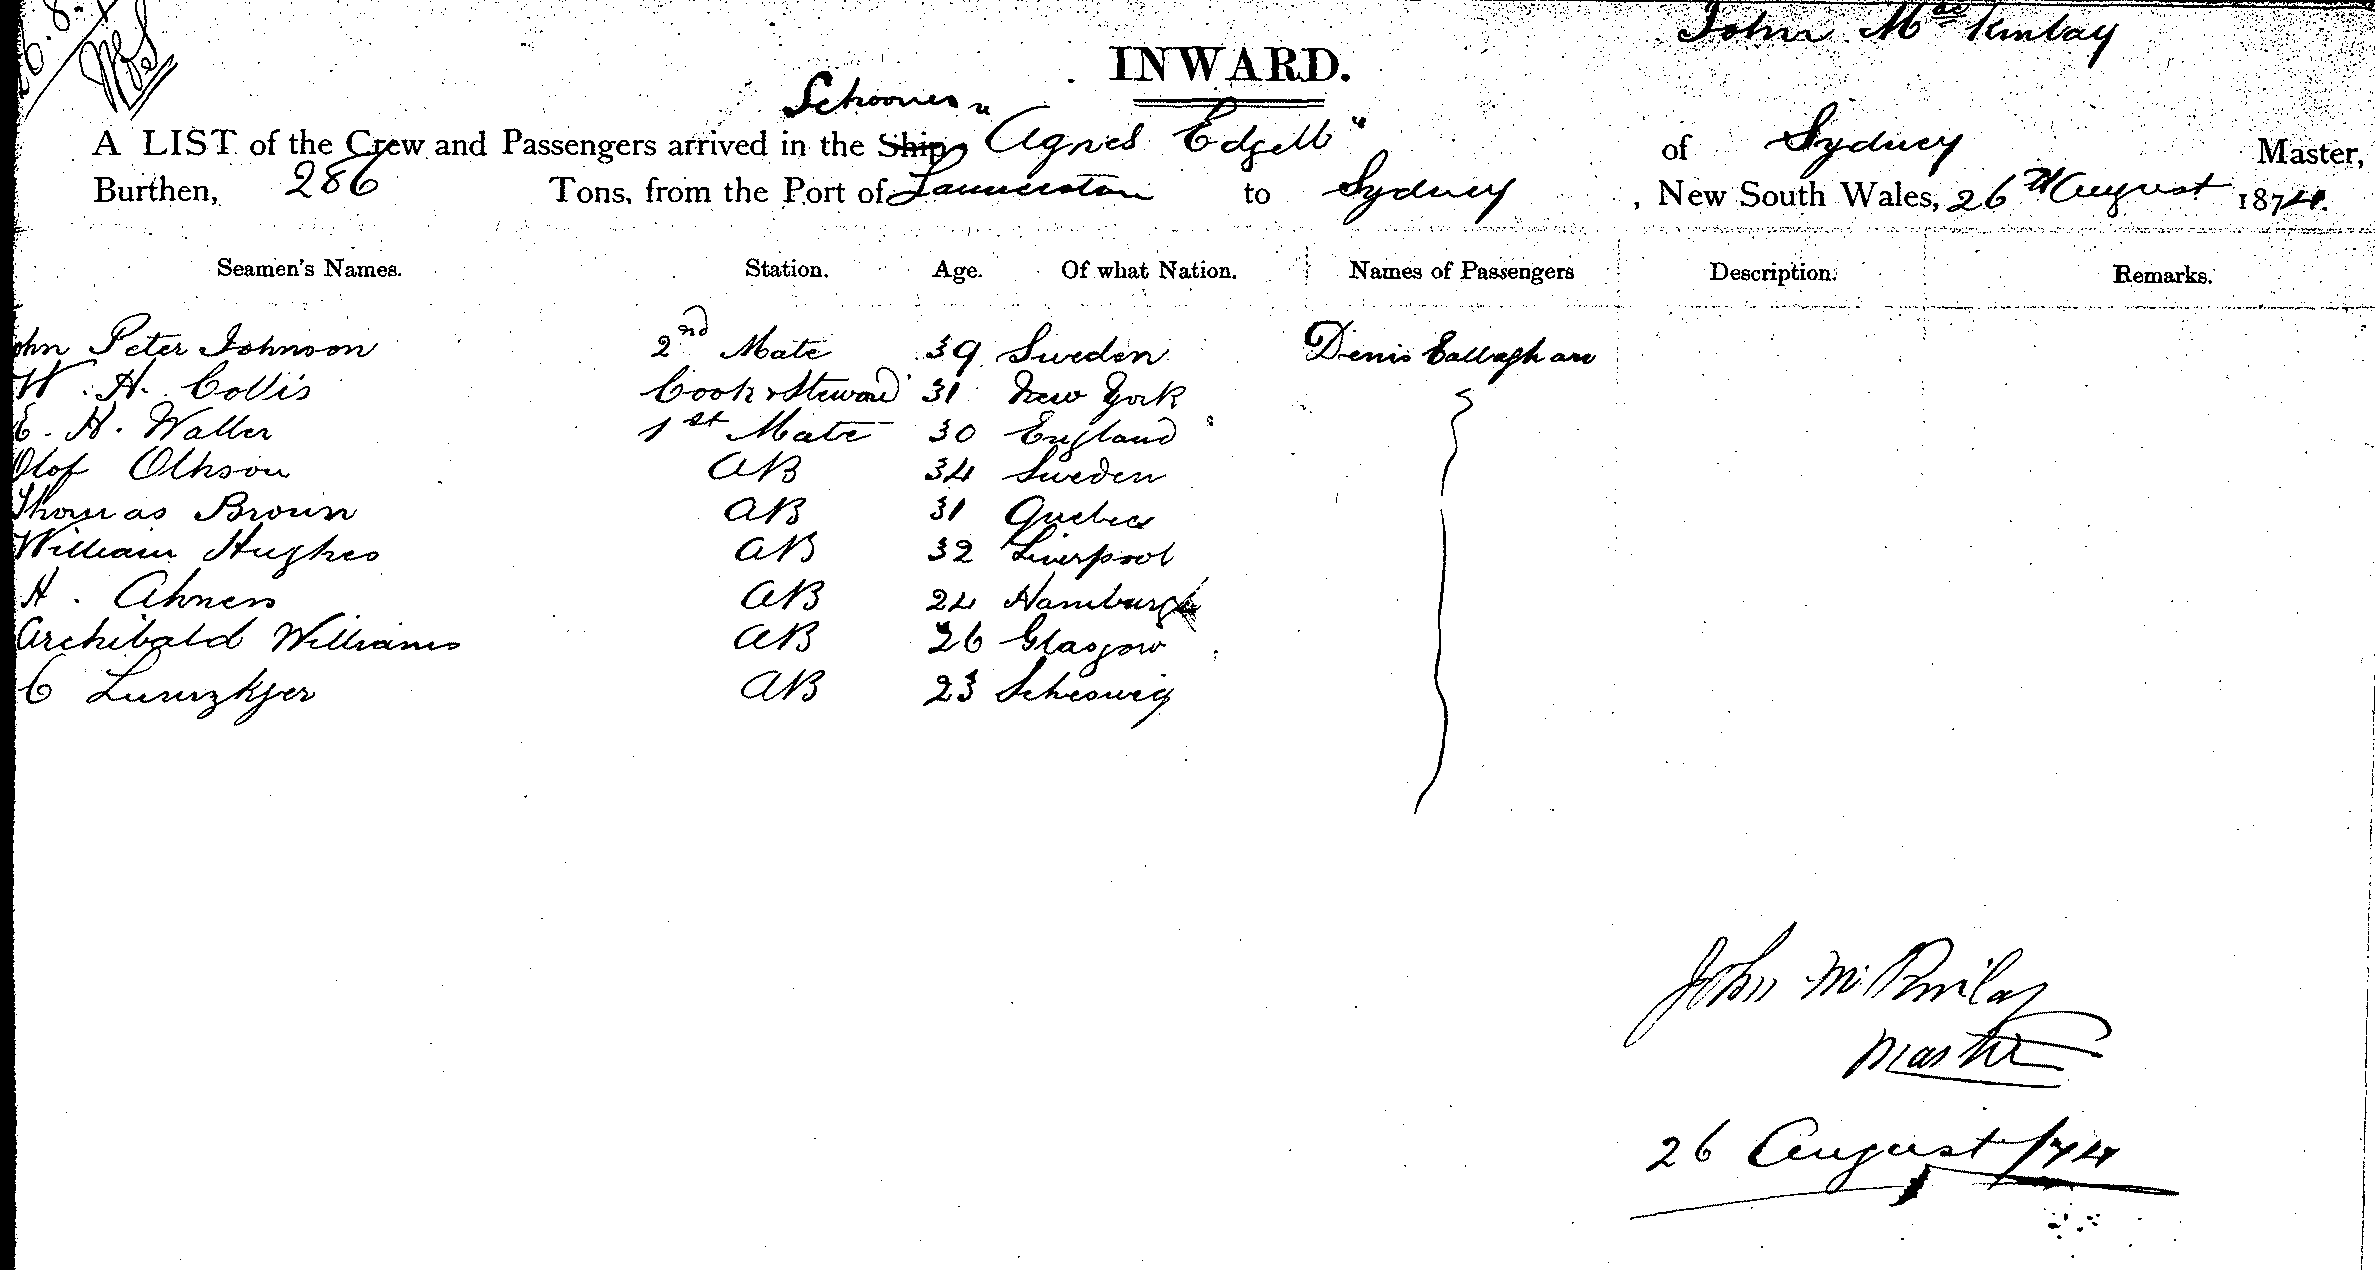 26.8.
John Mac Kinlay
INWARD.
Schooner
A LIST of the Crew and Passengers arrived in the Ship "Agnes Edgell" of Sydney Master,
Burthen, 286 Tons, from the Port of Launceston to Sydney, New South Wales, 26th August 1874.
Seamen's Names. Station. Age. Of what Nation. Names of Passengers Description. Remarks.
ohn Peter Johnson 2nd Mate 39 Sweden Denis Callaghan
W. H. Collis Cook & Steward 31 New York
E. H. Waller 1st Mate 30 England
Olof AB 34 Sweden
Thomas Brown AB 31 Quebec
William Hughes AB 32 Liverpool
H. Ahnens AB 24 Hamburgh
Archibald Williams AB 26 Glasgow
C AB 23 Scheswig
John McKinlay
Master
26 August /74